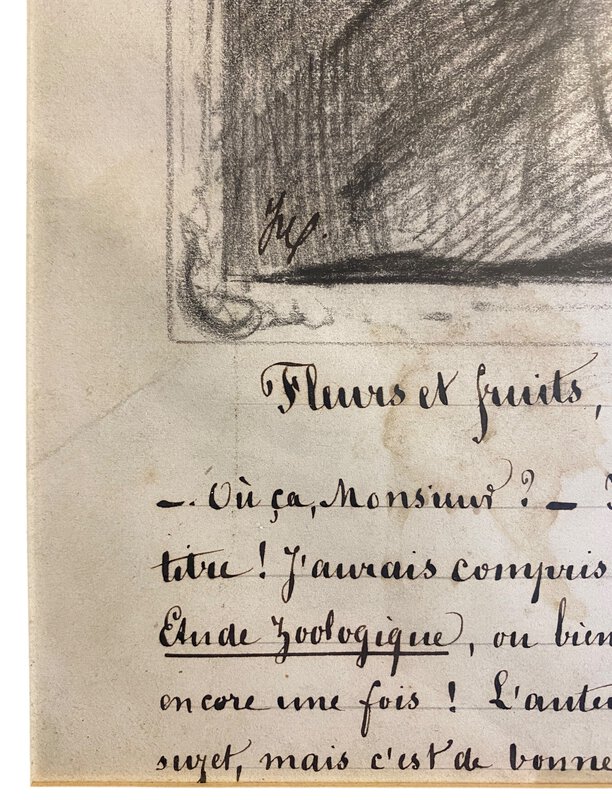 Fleurs et fruits,
— Où ça, Monsieur ? —
titre ! J'aurais compris
Etude Zoologique, ou bien
encore une fois ! L'auteu
sujet, mais c'est de bonne